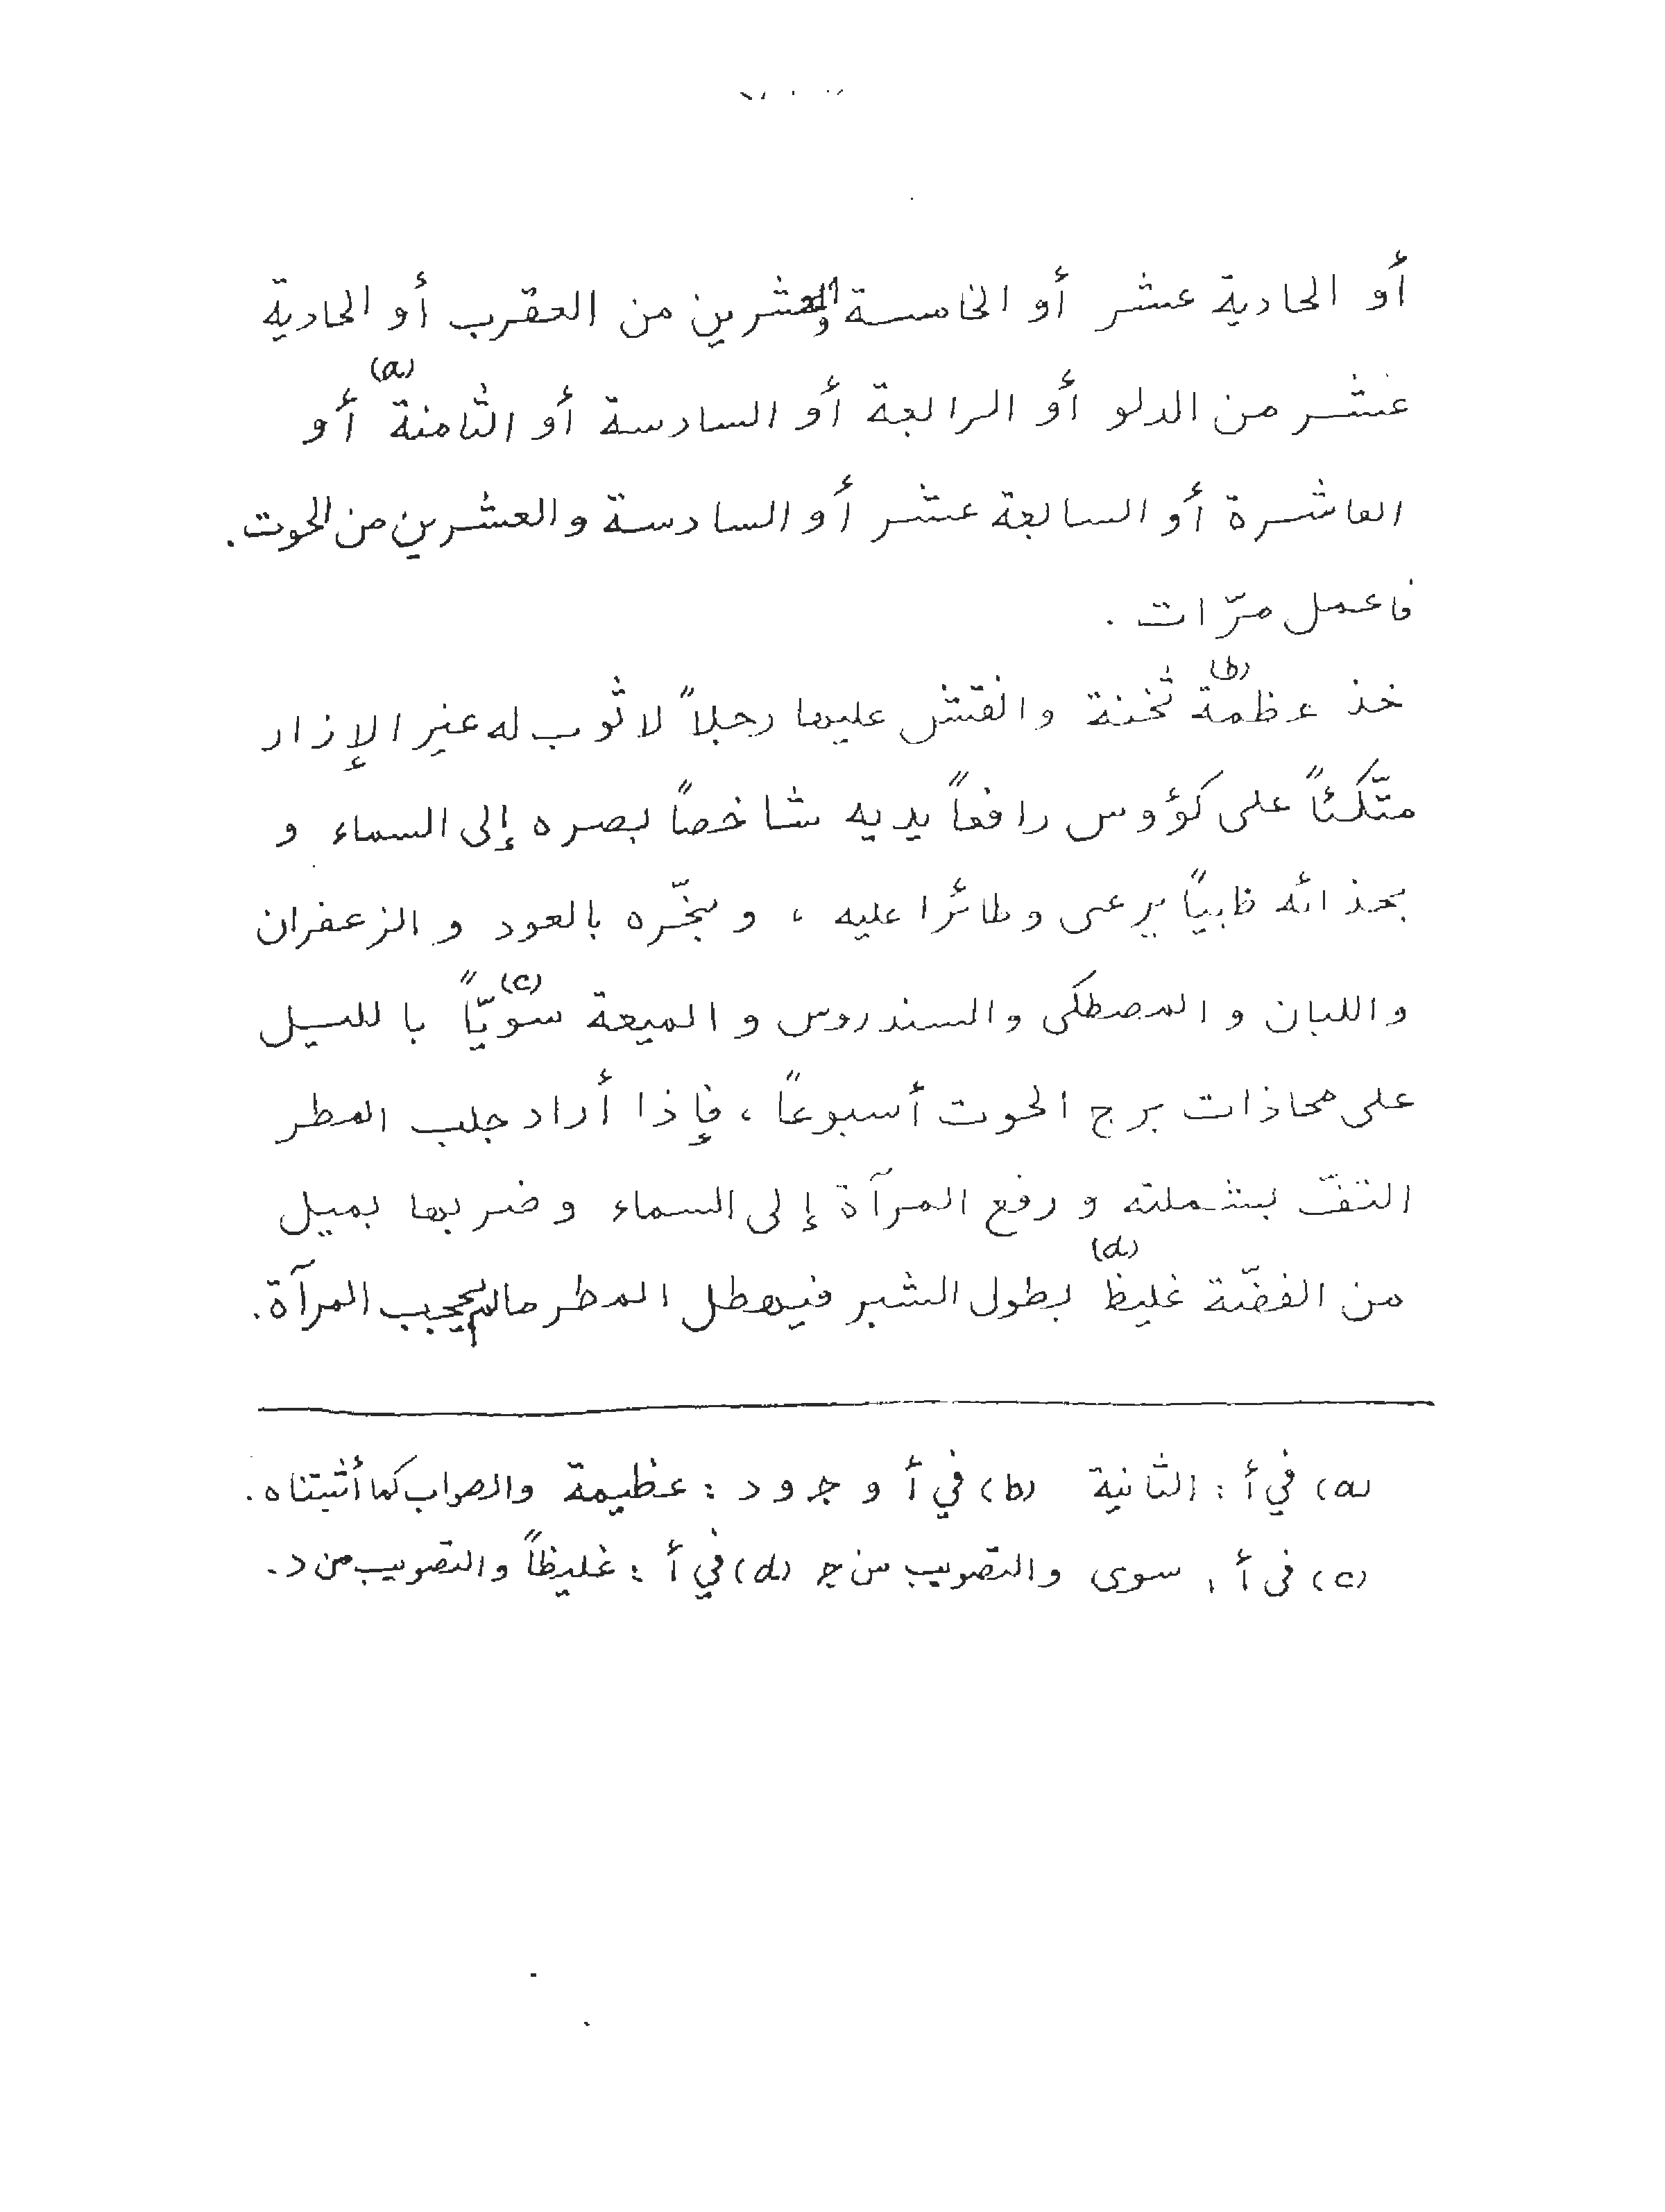 أو الحادية عشر أو الخامسة والعشرين من العقرب أو الحادية
عشر من الدلو أو الرابعة أو السادسة أو الثامنة(a) أو
العاشرة أو السابعة عشر أو السادسة والعشرين من الحوت.
فاعمل مرّات .
خذ عظمة(b) ثخنة وانقش عليها رجلاً لا ثوب له غير الإزار
متّكئاً على كؤوس رافعاً يديه شاخصاً بصره إلى السماء و
بحذائه ظابياً يرعى وطائرا عليه ، ويبخّره بالعود و الزعفران
واللبان و المصطكى والسندروس و الميعة سويّاً(c) بالليل
على محاذات برج الحوت أسبوعاً ، فإذا أراد جلب المطر
التفّ بشملته و رفع المرآة إلى السماء وضربها بميل
من الفضّة غليظ(d) بطول الشبر فيهطل المطر مالم يحجب المرآة.
(a) في أ : الثانية (b) في أ و ج و د : عظيمة والصواب كما أثبتناه.
(c) في أ : سوى والتصويب من ج (d) في أ : غليظاً والتصويب من د.